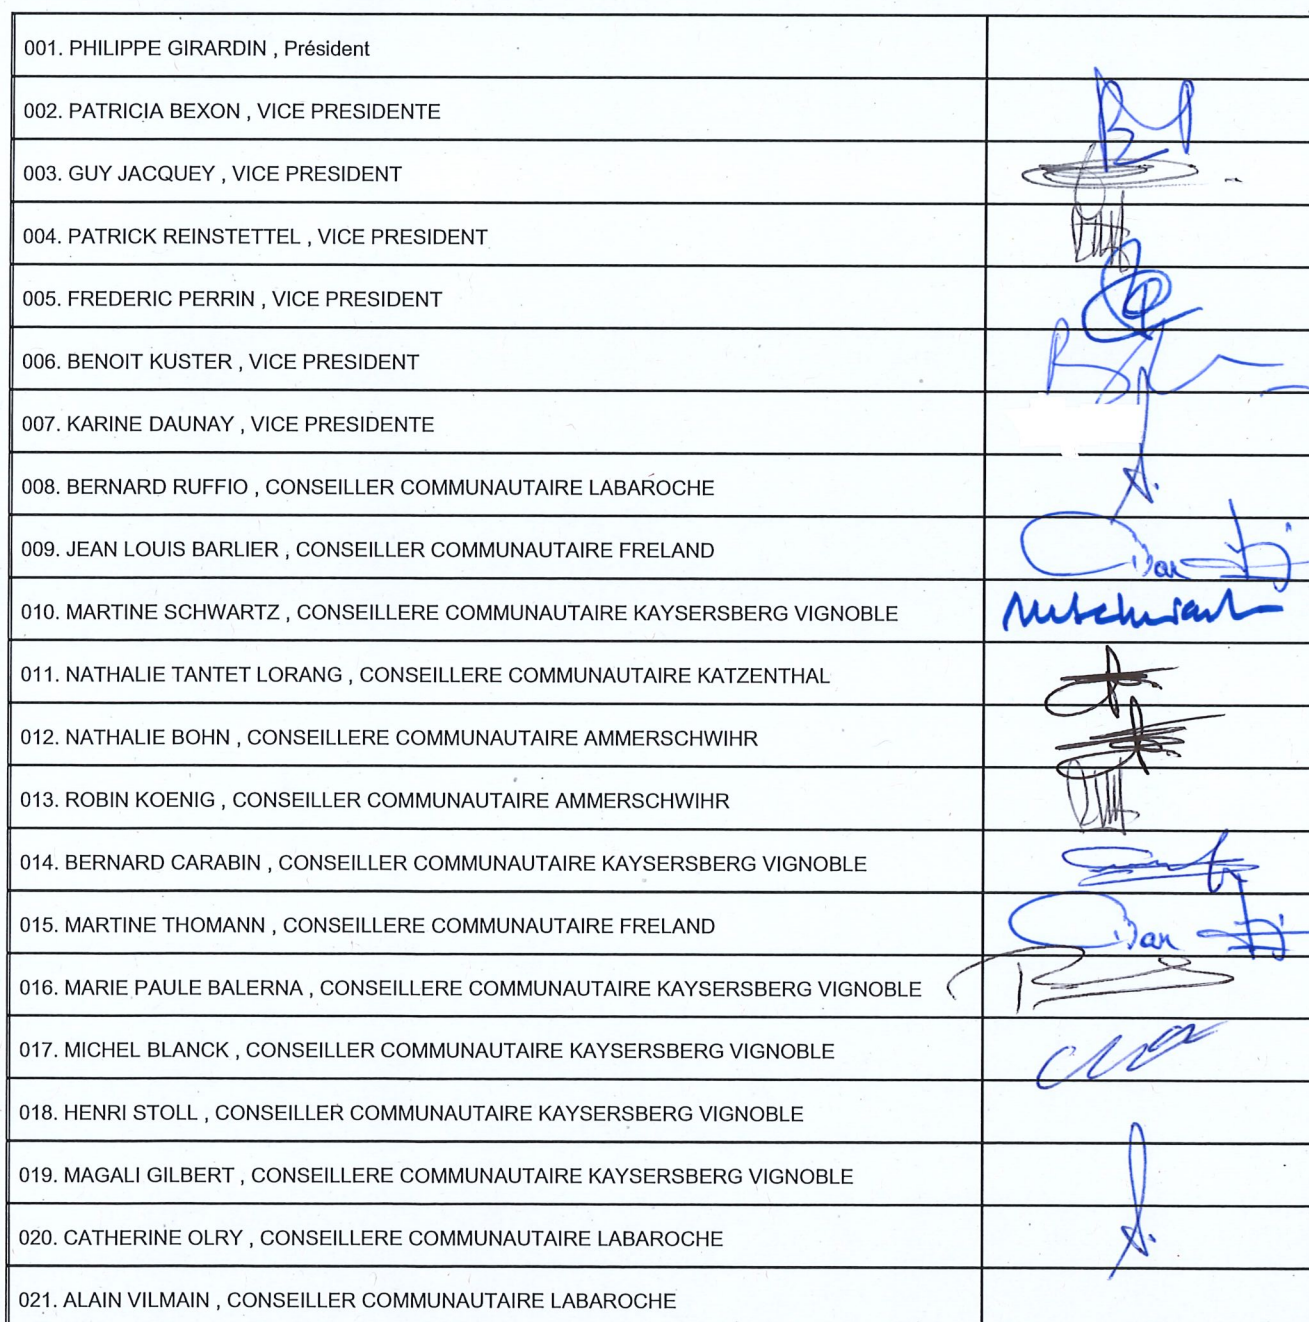 001. PHILIPPE GIRARDIN , Président
002. PATRICIA BEXON , VICE PRESIDENTE
003. GUY JACQUEY , VICE PRESIDENT
004. PATRICK REINSTETTEL , VICE PRESIDENT
005. FREDERIC PERRIN , VICE PRESIDENT
006. BENOIT KUSTER , VICE PRESIDENT
007. KARINE DAUNAY , VICE PRESIDENTE
008. BERNARD RUFFIO , CONSEILLER COMMUNAUTAIRE LABAROCHE
009. JEAN LOUIS BARLIER , CONSEILLER COMMUNAUTAIRE FRELAND
010. MARTINE SCHWARTZ , CONSEILLERE COMMUNAUTAIRE KAYSERSBERG VIGNOBLE
011. NATHALIE TANTET LORANG , CONSEILLERE COMMUNAUTAIRE KATZENTHAL
012. NATHALIE BOHN , CONSEILLERE COMMUNAUTAIRE AMMERSCHWIHR
013. ROBIN KOENIG , CONSEILLER COMMUNAUTAIRE AMMERSCHWIHR
014. BERNARD CARABIN , CONSEILLER COMMUNAUTAIRE KAYSERSBERG VIGNOBLE
015. MARTINE THOMANN , CONSEILLERE COMMUNAUTAIRE FRELAND
016. MARIE PAULE BALERNA , CONSEILLERE COMMUNAUTAIRE KAYSERSBERG VIGNOBLE
017. MICHEL BLANCK , CONSEILLER COMMUNAUTAIRE KAYSERSBERG VIGNOBLE
018. HENRI STOLL , CONSEILLER COMMUNAUTAIRE KAYSERSBERG VIGNOBLE
019. MAGALI GILBERT , CONSEILLERE COMMUNAUTAIRE KAYSERSBERG VIGNOBLE
020. CATHERINE OLRY , CONSEILLERE COMMUNAUTAIRE LABAROCHE
021. ALAIN VILMAIN , CONSEILLER COMMUNAUTAIRE LABAROCHE